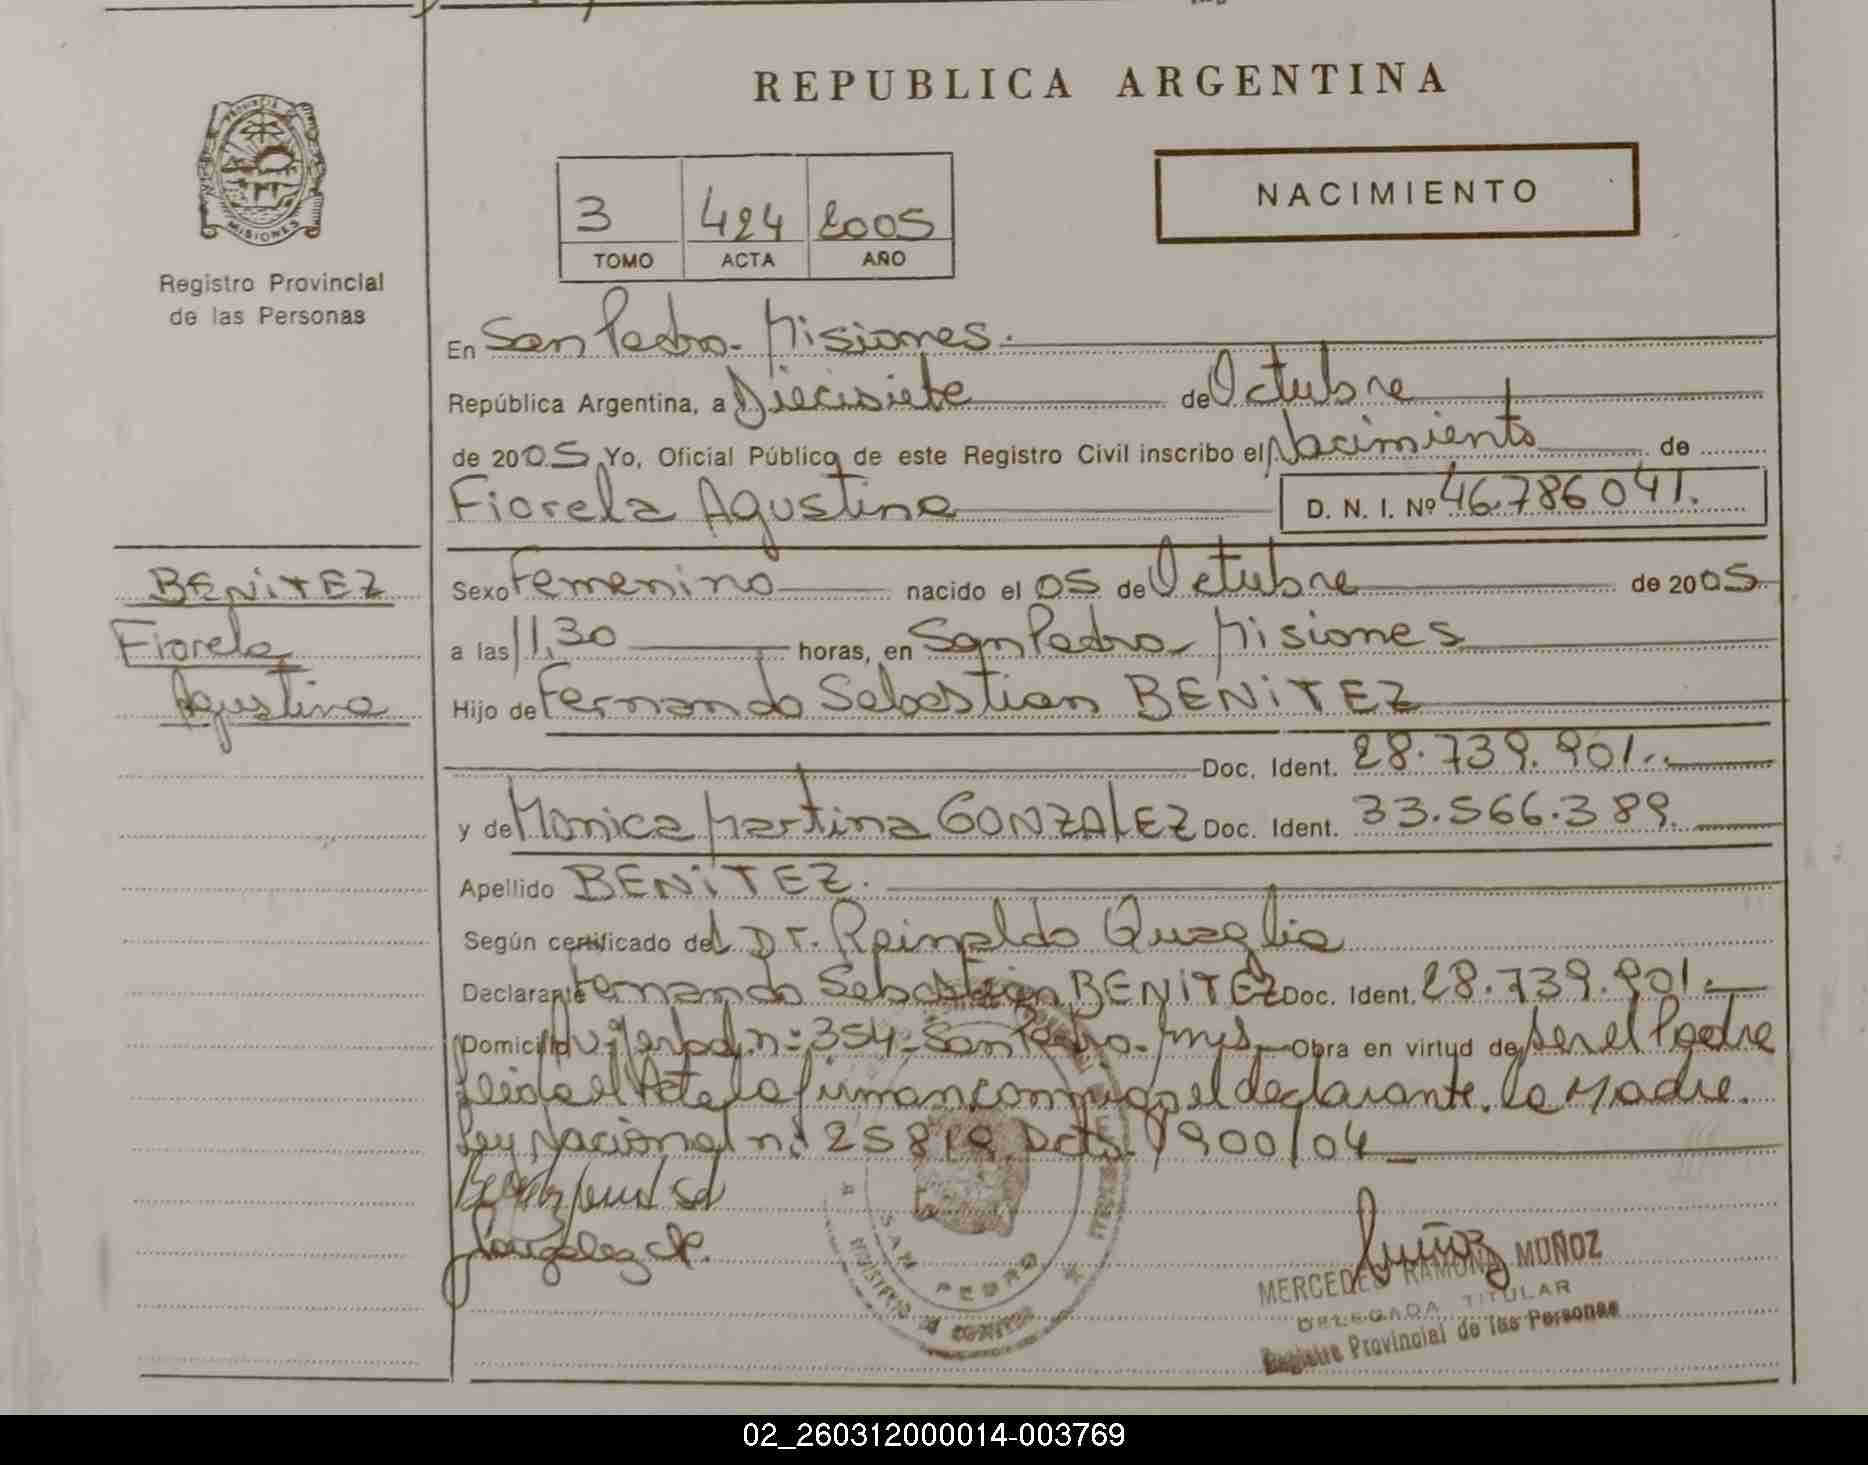 REPUBLICA ARGENTINA
PROVINCIA
MISIONES
Registro Provincial
de las Personas
3 424 2005
TOMO ACTA AÑO
NACIMIENTO
En San Pedro - Misiones.
República Argentina, a Diecisiete de Octubre
de 2005 Yo, Oficial Público de este Registro Civil inscribo el Nacimiento de
Fiorela Agustina D. N. I. Nº 46.786041.
BENITEZ
Fiorela
Agustina
Sexo Femenino nacido el 05 de Octubre de 2005
a las 11,30 horas, en San Pedro - Misiones
Hijo de Fernando Sebastian BENITEZ
Doc. Ident. 28.739.901.
y de Monica Martina GONZALEZ Doc. Ident. 33.566.389.
Apellido BENITEZ.
Según certificado del Dr. Reinaldo Quaglia
Declarante Fernando Sebastian BENITEZ Doc. Ident. 28.739.901.
Domicilio n= 354 - San Pedro - Mnes Obra en virtud de ser el Padre
leida el Acta la firman conmigo el declarante, la Madre.
Ley Nacional n: 25819 Dcto. 1900/04
Gonzalez M.
SAN PEDRO
Muñoz
MERCEDES RAMONA MUÑOZ
DELEGADA TITULAR
Registro Provincial de las Personas
02_260312000014-003769